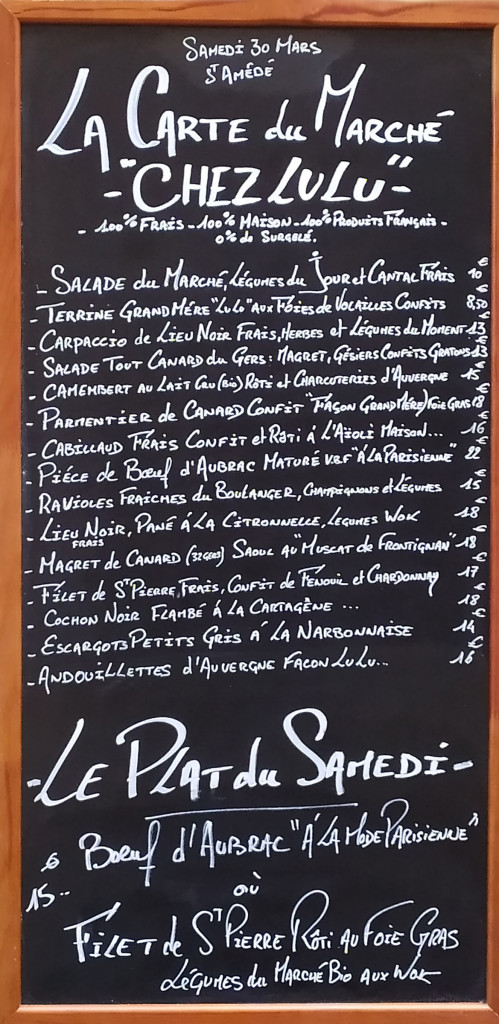 SAMEDI 30 MARS
ST AMÉDÉ
LA CARTE du MARCHÉ
- "CHEZ LULU" -
- 100% FRAIS - 100% MAISON - 100% PRODUITS FRANÇAIS -
0% de SURGELÉ.
- SALADE du MARCHÉ, LÉGUMES du JOUR et CANTAL FRAIS 10 €
- TERRINE GRAND MÉRE "LULU" AUX FOIES de VOLAILLES CONFITS 8,50 €
- CARPACCIO de LIEU NOIR FRAIS, HERBES et LÉGUMES du MOMENT 13 €
- SALADE TOUT CANARD du GERS: MAGRET, GÉSIERS CONFITS GRATONS 13 €
- CAMEMBERT AU LAIT CRU (BIO) RÔTI et CHARCUTERIES d'AUVERGNE 15 €
- PARMENTIER de CANARD CONFIT "FAÇON GRAND MÉRE" FOIE GRAS 18 €
- CABILLAUD FRAIS CONFIT et RÔTI Á L'AÏOLI MAISON... 16 €
- PIÉCE de BŒUF D'AUBRAC MATURÉ V.B.F "Á LA PARISIENNE" 22 €
- RAVIOLES FRAICHES du BOULANGER, CHAMPIGNONS et LÉGUMES 15 €
- LIEU NOIR, PANÉ Á LA CITRONNELLE, LEGUMES WOK 18 €
FRAIS
- MAGRET de CANARD (32GERS) SAOUL AU "MUSCAT de FRONTIGNAN" 18 €
- FILET de ST PIERRE, FRAIS, CONFIT de FENOUIL et CHARDONNAY 17 €
- COCHON NOIR FLAMBÉ Á LA CARTAGÈNE ... 18 €
- ESCARGOTS PETITS GRIS Á LA NARBONNAISE 14 €
- ANDOUILLETTES d'AUVERGNE FACON LULU... 16 €
- LE PLAT du SAMEDI -
BŒUF d'AUBRAC "Á LA MODE PARISIENNE"
15 .. €
où
FILET de ST PIERRE RÔTI AU FOIE GRAS
LÉGUMES du MARCHÉ BIO AUX WOK